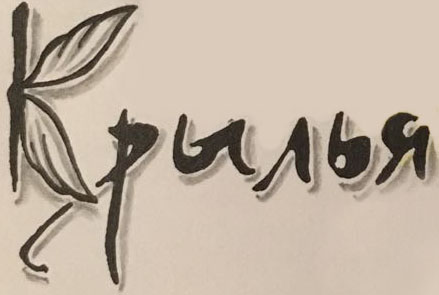 Крылья